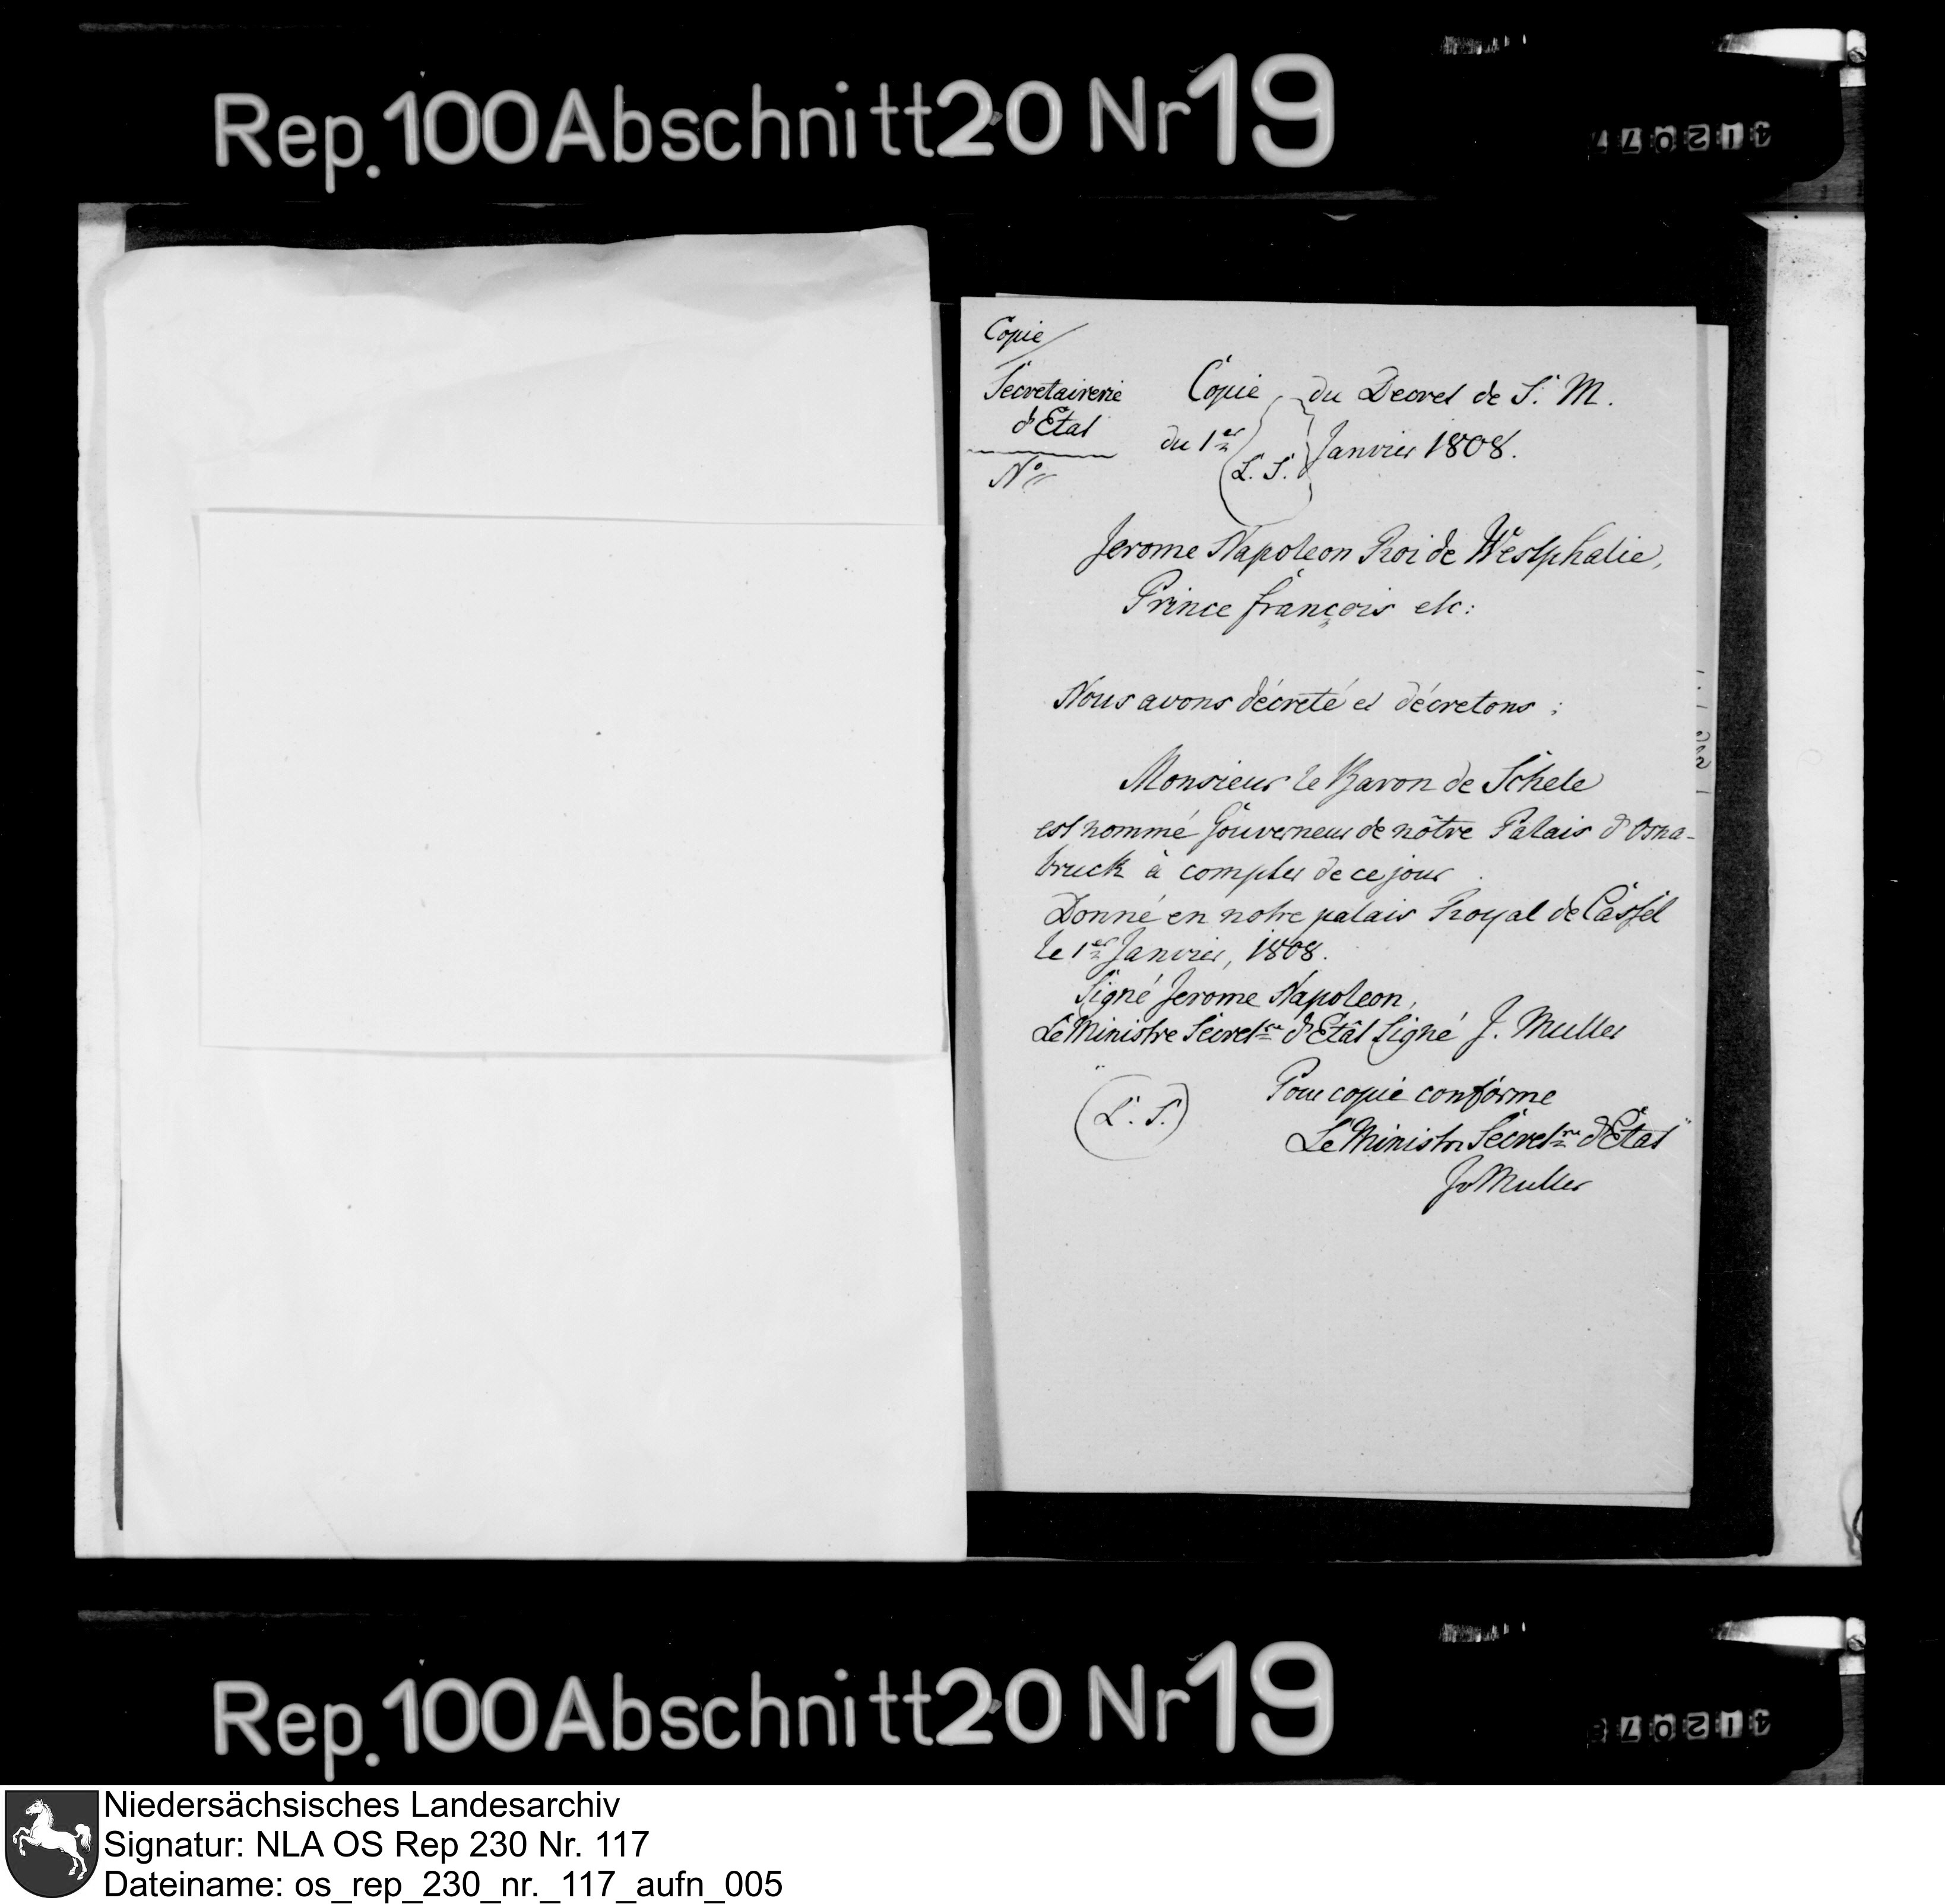 Rep. 100 Abschnitt 20 Nr 19
Copie
Secretairerie
d'Etat
No
Copie du Decret de S. M.
du 1er Janvier 1808.
L. S.
Jerome Napoleon Roi de Westphalie,
Prince françois etc:
Nous avons décreté et décretons :
Monsieur le Baron de Schele
est nommé Gouverneur de nôtre Palais d'Osna-
bruck à compter de ce jour.
Donné en notre palais Royal de Cassel
le 1er Janvier, 1808.
Signé Jerome Napoleon,
Le Ministre Secretre d'Etât Signé J. Muller
(L. S.)
Pour copie conforme
Le Ministre Secretre d'Etat
Jv Muller
Rep. 100 Abschnitt 20 Nr 19
Niedersächsisches Landesarchiv
Signatur: NLA OS Rep 230 Nr. 117
Dateiname: os_rep_230_nr._117_aufn_005